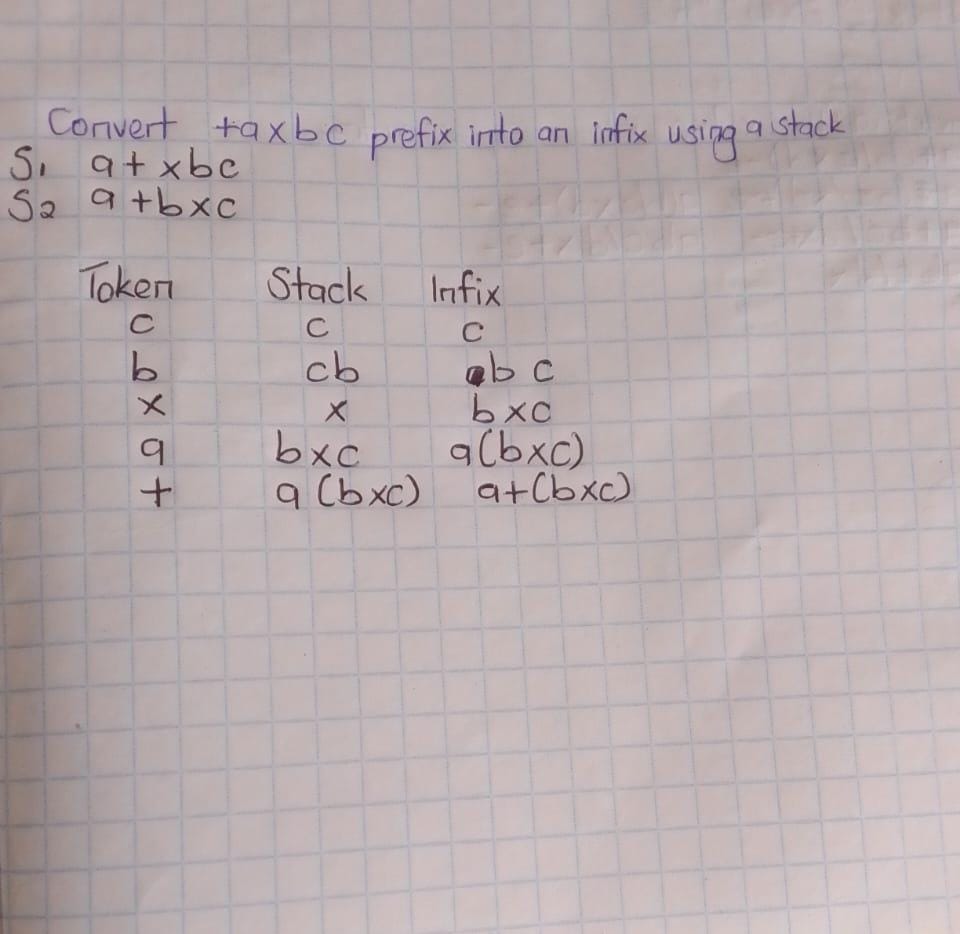 Convert +axbc prefix into an infix using a stack
S1 a+xbc
S2 a+bxc
Token Stack Infix
c c c
b cb bc
x x bxc
a bxc a(bxc)
+ a(bxc) a+(bxc)